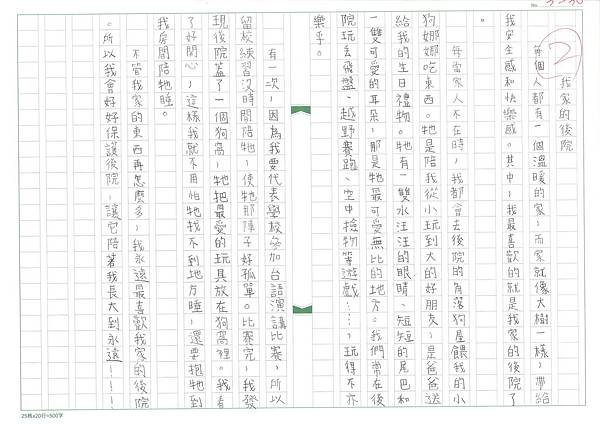 No. 3-30
2
我家的後院
每個人都有一個溫暖的家，而家就像大樹一樣，帶給
我安全感和快樂感。其中，我最喜歡的就是我家的後院了
。
每當家人不在時，我都會去後院的角落狗屋餵我的小
狗娜娜吃東西。牠是陪我從小玩到大的好朋友，是爸爸送
給我的生日禮物。牠有一雙水汪汪的眼睛、短短的尾巴和
一雙可愛的耳朵，那是牠最可愛無比的地方。我們常在後
院玩丟飛盤、越野賽跑、空中撿物等遊戲……，玩得不亦
樂乎。
有一次，因為我要代表學校參加台語演講比賽，所以
留校練習沒時間陪牠，使牠那陣子好孤單。比賽完，我發
現後院蓋了一個狗窩，牠把最愛的玩具放在狗窩裡。我看
了好開心，這樣我就不用怕牠找不到地方睡，還要抱牠到
我房間陪牠睡。
不管我家的東西再怎麼多，我永遠最喜歡我家的後院
。所以我會好好保護後院，讓它陪著我長大到永遠！！！！
25格x20行=500字